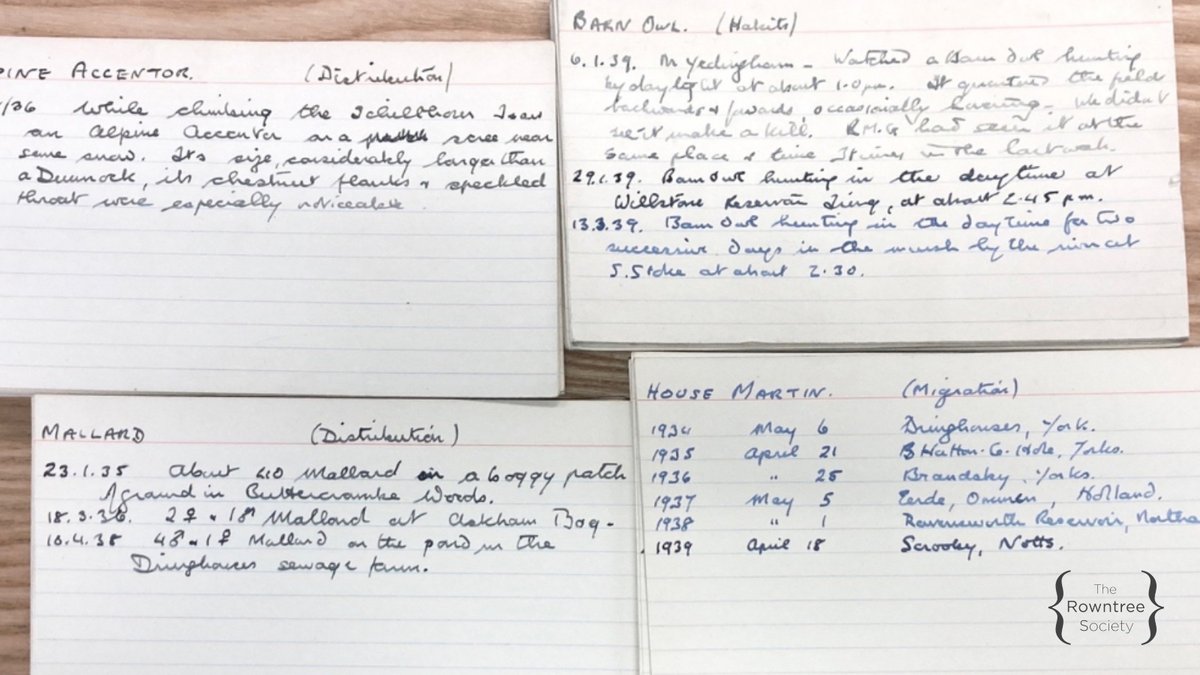 PINE ACCENTOR. (Distribution)
/36 While climbing the Schilthorn I saw
an Alpine Accentor on a scree near
some snow. Its size, considerably larger than
a Dunnock, its chestnut flanks & speckled
throat were especially noticeable.
BARN OWL. (Habits)
6.1.39. Nr Yedingham - Watched a Barn Owl hunting
by daylight at about 1.0 pm. It quartered the field
backwards & forwards, occasionally hovering - We didn't
see it make a kill. R.M.G had seen it at the
same place & time 3 times in the last week.
29.1.39. Barn Owl hunting in the daytime at
Willstone Reservoir Tring, at about 2.45 pm.
13.3.39. Barn Owl hunting in the daytime for two
successive days in the marsh by the river at
S. Stoke at about 2.30.
MALLARD (Distribution)
23.1.35 About 40 Mallard in a boggy patch
of ground in Buttercrambe Woods.
18.3.36. 2♀ & 1♂ Mallard at Askham Bog-
10.4.38 4♂ & 1♀ Mallard on the pond in the
Dringhouses sewage farm.
HOUSE MARTIN. (Migration)
1934 May 6 Dringhouses, York.
1935 April 21 Hutton-le-Hole, Yorks.
1936 " 25 Brandsby, Yorks.
1937 May 5 Eerde, Ommen, Holland.
1938 " 1 Ravensworth Reservoir,
1939 April 18 Scrooby, Notts.
The
Rowntree
Society